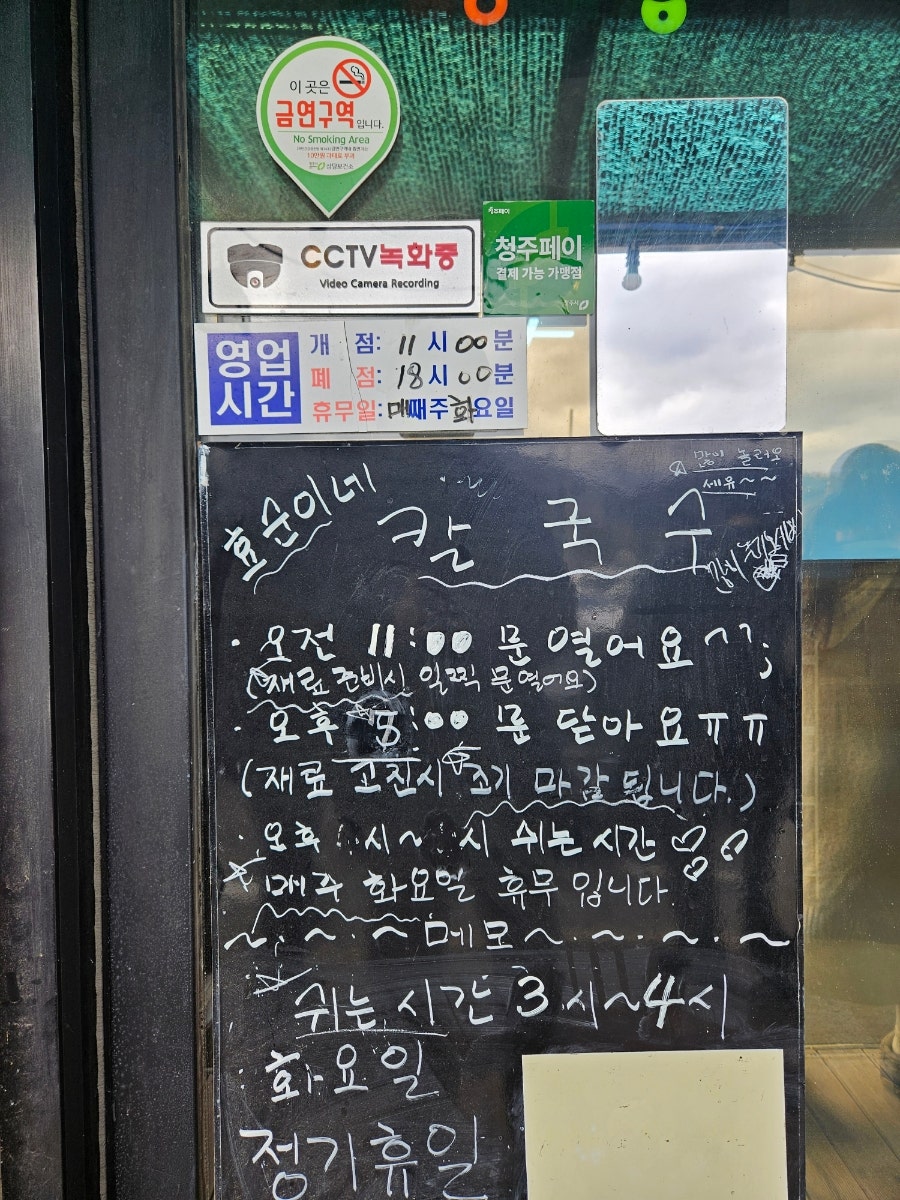 이 곳은
금연구역입니다.
No Smoking Area
10만원 과태료 부과
상당보건소
CCTV녹화중
Video Camera Recording
청주페이
청주페이
결제 가능 가맹점
청주시
영업
시간
개 점: 11시 00분
폐 점: 18시 00분
휴무일: 매째주 화요일
많이 놀러오
세유~~
효순이네
칼국수
· 오전 11:00 문 열어요^^;
(재료 준비시 일찍 문열어요)
· 오후 5:00 문 닫아요ㅠㅠ
(재료 소진시 조기 마감 됩니다.)
· 오후 시~ 시 쉬는 시간♡♡♡
매주 화요일 휴무 입니다.
~·~·~메모~·~·~·~
쉬는 시간 3시~4시
· 화요일
정기휴일